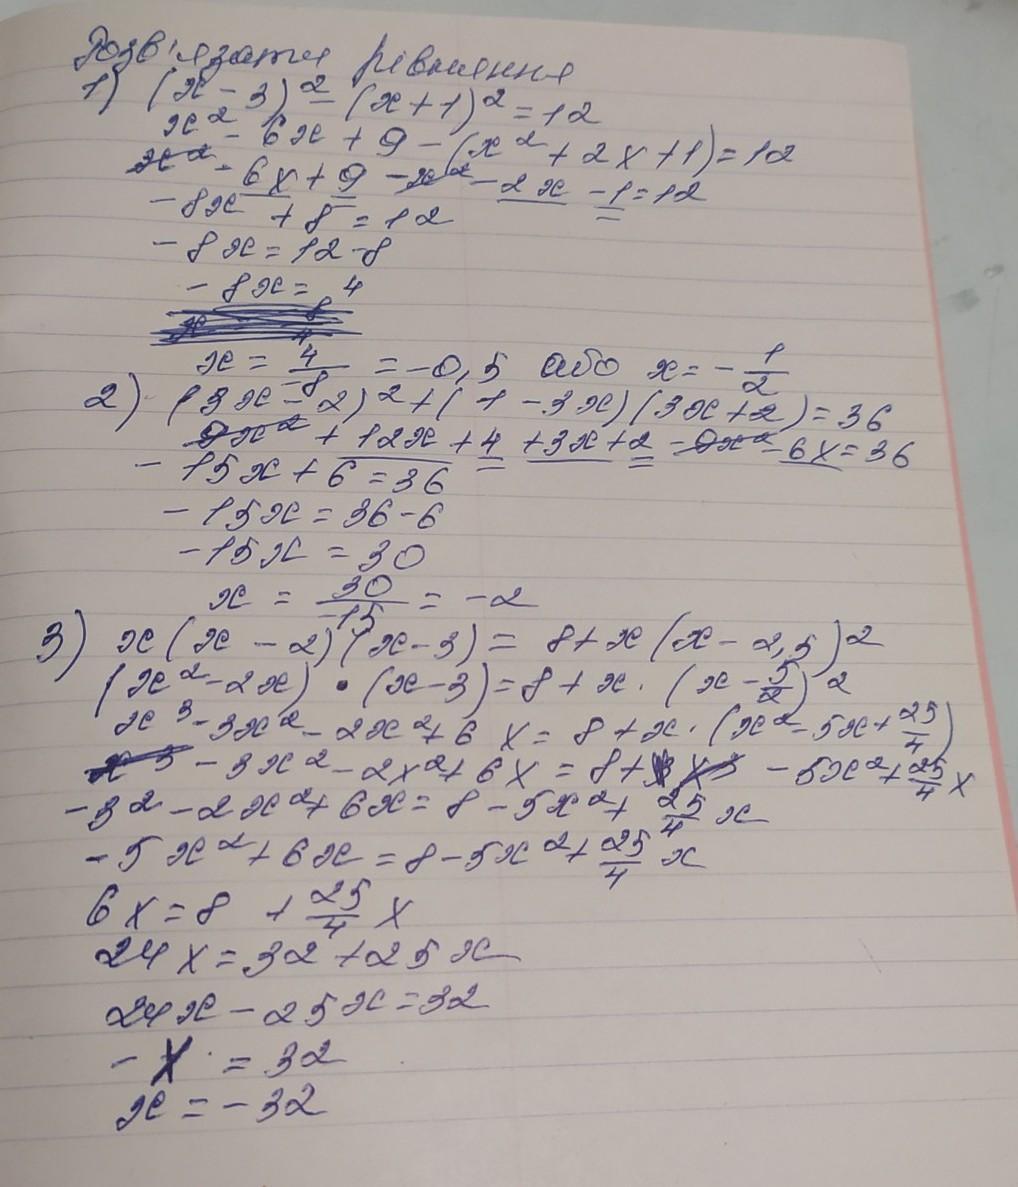 Розв'язати рівняння
1) (x - 3)² - (x + 1)² = 12
x² - 6x + 9 - (x² + 2x + 1) = 12
x² - 6x + 9 - x² - 2x - 1 = 12
- 8x + 8 = 12
- 8x = 12 - 8
- 8x = 4
x = 4/-8 = -0,5 або x = - 1/2
2) (3x - 2)² + (1 - 3x)(3x + 2) = 36
9x² + 12x + 4 + 3x + 2 - 9x² - 6x = 36
- 15x + 6 = 36
- 15x = 36 - 6
- 15x = 30
x = 30/-15 = -2
3) x(x - 2)(x - 3) = 8 + x(x - 2,5)²
(x² - 2x) · (x - 3) = 8 + x · (x - 5/2)²
x³ - 3x² - 2x² + 6x = 8 + x · (x² - 5x + 25/4)
x³ - 3x² - 2x² + 6x = 8 + x³ - 5x² + 25/4 x
- 3² - 2x² + 6x = 8 - 5x² + 25/4 x
- 5x² + 6x = 8 - 5x² + 25/4 x
6x = 8 + 25/4 x
24x = 32 + 25x
24x - 25x = 32
- x = 32
x = - 32